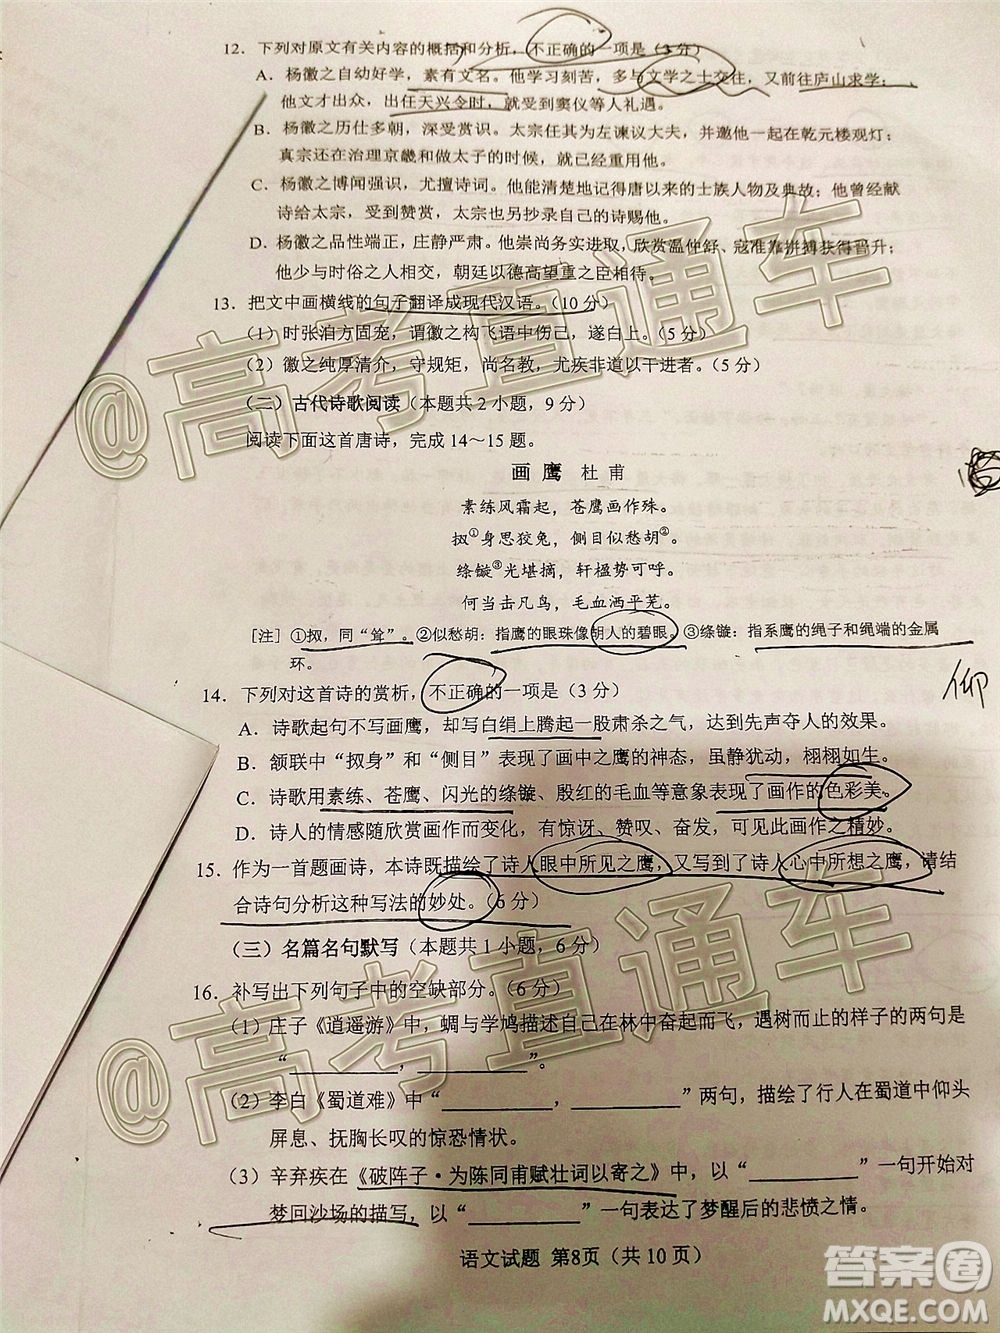 12．下列对原文有关内容的概括和分析，不正确的一项是（3分）
A．杨徽之自幼好学，素有文名。他学习刻苦，多与文学之士交往，又前往庐山求学；
他文才出众，出任天兴令时，就受到窦仪等人礼遇。
B．杨徽之历仕多朝，深受赏识。太宗任其为左谏议大夫，并邀他一起在乾元楼观灯。
真宗还在治理京畿和做太子的时候，就已经重用他。
C．杨徽之博闻强识，尤擅诗词。他能清楚地记得唐以来的士族人物及典故；他曾经献
诗给太宗，受到赞赏，太宗也另抄录自己的诗赐他。
D．杨徽之品性端正，庄静严肃。他崇尚务实进取，欣赏温仲舒、寇准靠拼搏获得晋升，
他少与时俗之人交往，朝廷以德高望重之臣优待。
13．把文中画横线的句子翻译成现代汉语。（10分）
（1）时张洎方固宠，谓徽之构飞语中伤己，遂白上。（5分）
（2）徽之纯厚清介，守规矩，尚名教，尤疾非道以干进者。（5分）
（二）古代诗歌阅读（本题共2小题，9分）
阅读下面这首唐诗，完成14～15题。
画鹰 杜甫
素练风霜起，苍鹰画作殊。
㧐①身思狡兔，侧目似愁胡②。
绦镟③光堪摘，轩楹势可呼。
何当击凡鸟，毛血洒平芜。
［注］①㧐，同“耸”。②似愁胡：指鹰的眼珠像胡人的碧眼。③绦镟：指系鹰的绳子和绳端的金属
环。
14．下列对这首诗的赏析，不正确的一项是（3分）
仰
A．诗歌起句不写画鹰，却写白绢上腾起一股肃杀之气，达到先声夺人的效果。
B．颔联中“㧐身”和“侧目”表现了画中之鹰的神态，虽静犹动，栩栩如生。
C．诗歌用素练、苍鹰、闪光的绦镟、殷红的毛血等意象表现了画作的色彩美。
D．诗人的情感随欣赏画作而变化，有惊讶、赞叹、奋发，可见此画作之精妙。
15．作为一首题画诗，本诗既描绘了诗人眼中所见之鹰，又写到了诗人心中所想之鹰，请结
合诗句分析这种写法的妙处。（6分）
（三）名篇名句默写（本题共1小题，6分）
16．补写出下列句子中的空缺部分。（6分）
（1）庄子《逍遥游》中，蜩与学鸠描述自己在林中奋起而飞，遇树而止的样子的两句是
“________，________”。
（2）李白《蜀道难》中“________，________”两句，描绘了行人在蜀道中仰头
屏息、抚胸长叹的惊恐情状。
（3）辛弃疾在《破阵子·为陈同甫赋壮词以寄之》中，以“________”一句开始对
梦回沙场的描写，以“________”一句表达了梦醒后的悲愤之情。
语文试题 第8页（共10页）
@高考直通车
@高考直通车
答案圈
MXQE.COM